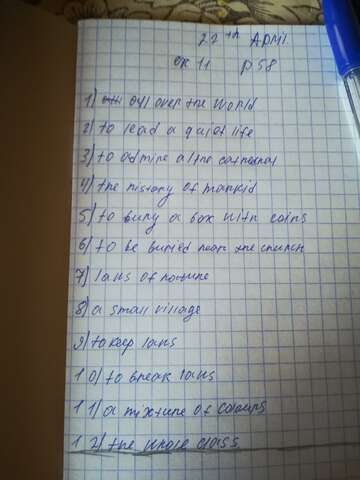 22th April
ex 11 p 58
1) all over the world
2) to lead a quiet life
3) to admire a fine cathedral
4) the history of mankid
5) to bury a box with coins
6) to be buried near the church
7) laws of nature
8) a small village
9) to keep laws
10) to break laws
11) a mixture of colours
12) the whole class